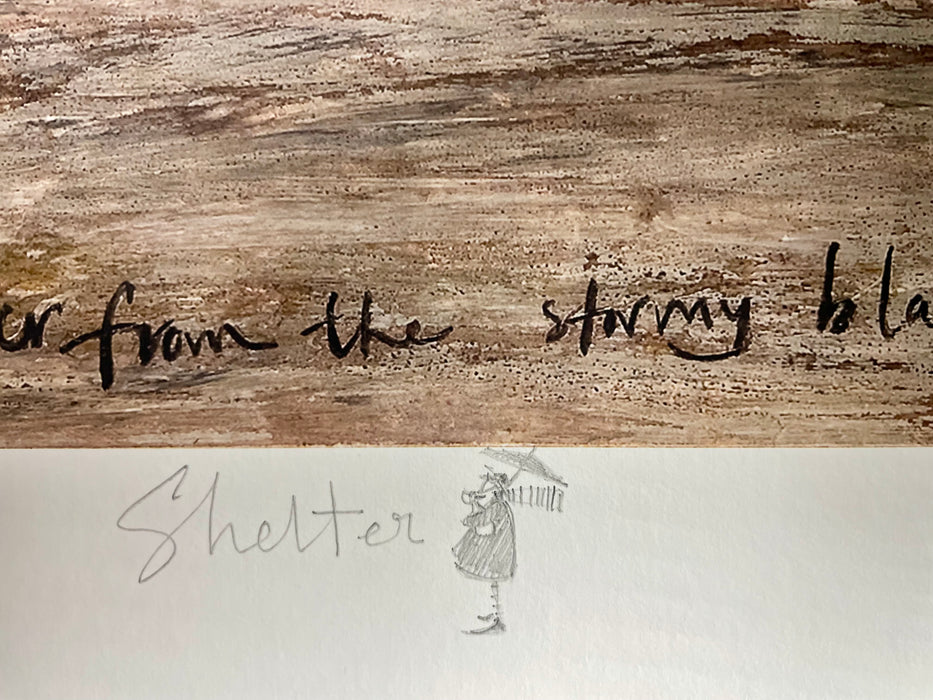 er from the stormy bla
Shelter